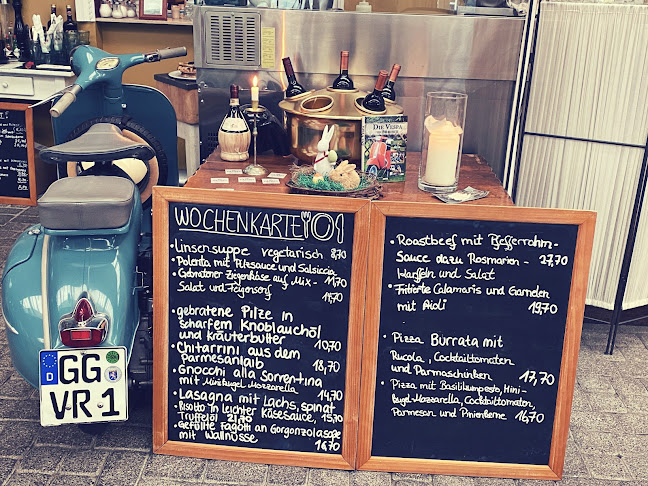 WOCHENKARTE
• Linsensuppe vegetarisch 8,70
• Polenta mit Pilzsauce und Salsiccia 11,70
• Gebratener Ziegenkäse auf Mix-
Salat und Feigensenf 11,70
• gebratene Pilze in
scharfem Knoblauchöl
und Kräuterbutter 10,70
• Chitarrini aus dem
Parmesanlaib 18,70
• Gnocchi alla Sorrentina
mit Minikugel Mozzarella 14,70
• Lasagna mit Lachs, spinat 15,70
• Risotto in leichter Käsesauce,
Trüffelöl 21,70
• Gefüllte Fagotti an Gorgonzolasoße
mit Wallnüsse 16,70
• Roastbeef mit Pfefferrahm-
Sauce dazu Rosmarien- 27,70
Kartfeln und Salat
• Fritierte Calamaris und Garnelen
mit Aioli 19,70
• Pizza Burrata mit
Rucola, Cocktailtomaten
und Parmaschinken 17,70
• Pizza mit Basilikumpesto, Mini-
kugel Mozzarella, Cocktailtomaten,
Parmesan und Pinienkerne 16,70
DIE VESPA
D
GG
VR 1